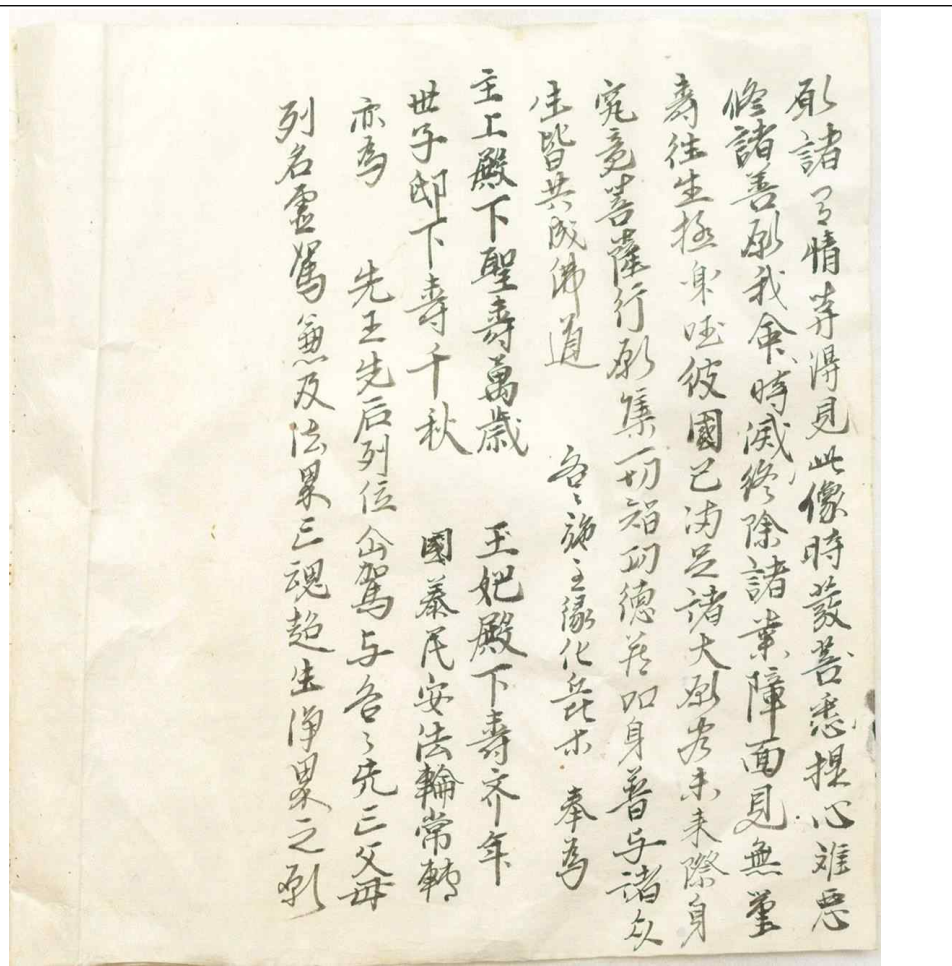 願諸有情等得見此像時發菩悉提心難悪
修諸善願我命時滅終除諸業障面見無量
壽往生極楽啀彼國已滿足諸大願尽未来際身
究竟菩薩行願集一切智功德若如身普与諸众
生皆共成佛道 各〻施主縁化𠔃木 奉為
主上殿下聖壽萬歳 王妃殿下壽齐年
世子邸下壽千秋 國泰民安法輪常轉
亦為 先王先后列位仙駕与各〻先亡父母
列名霊駕兼及法界亡魂超生浄界之願